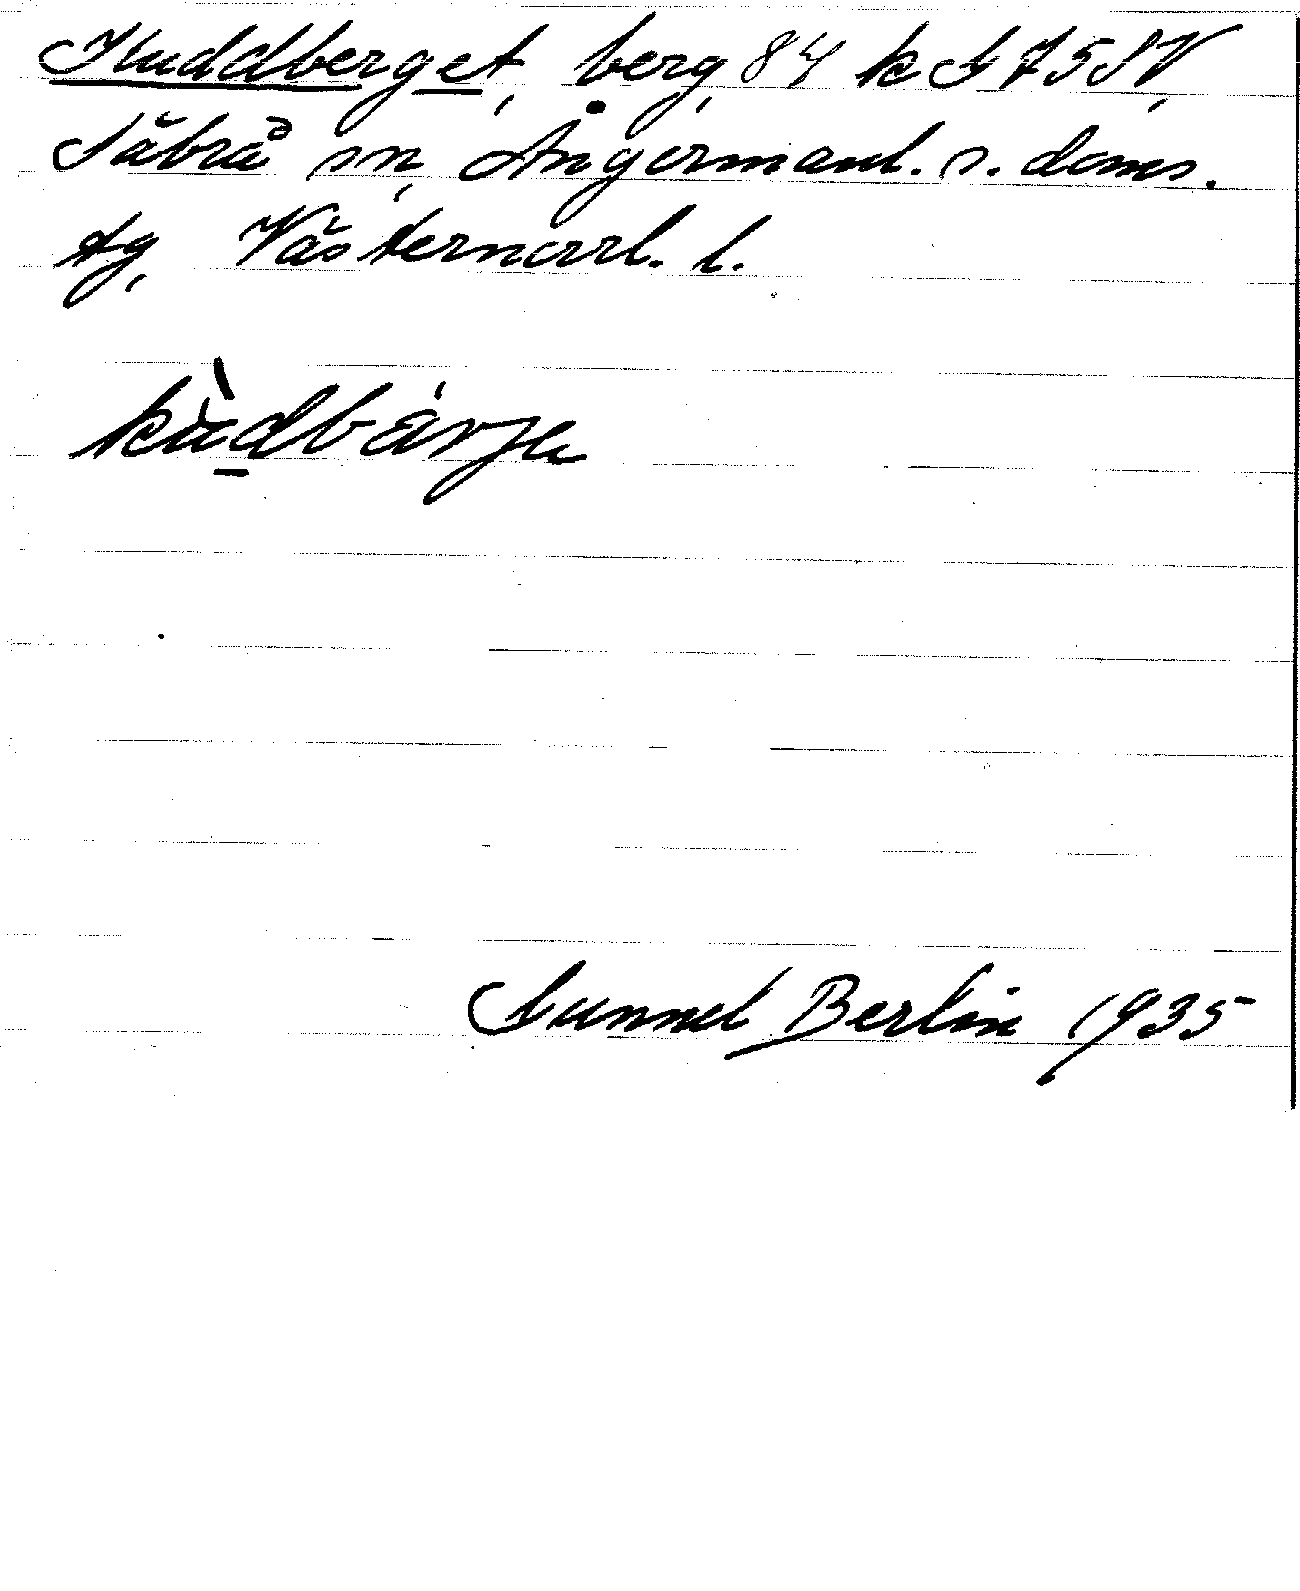 Kuddberget, berg 84 k G 75 SV,
Säbrå sn, Ångermanl. s. doms.
tg, Västernorrl. l.
kùdbárje
Gunnel Berlin 1935